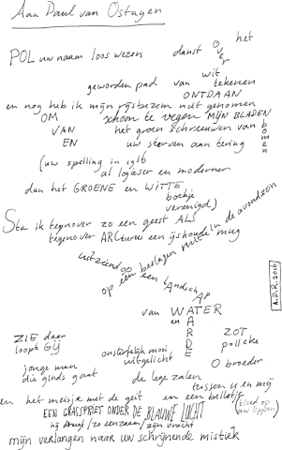 Aan Paul van Ostayen
het
POL uw naam loos wezen danst over
wit
geworden pad van tekenen
ONTDAAN
en nog heb ik mijn rijsbezem niet genomen
OM schoon te vegen MIJN BLADEN
VAN het groen schreeuwen van bomen
EN uw sterven aan tering
(uw spelling in 1916
al logieser en moderner
dan het GROENE en WITTE
boekje
verenigd)
Sta ik tegenover zo een geest ALS
tegenover ARCturus een ijskoude mug
in de avondzon
uitziend op een beslagen ruit
op een een LANdSchAP
van WATER
en AARDE
ZIE daar ZOT
loopt GIJ onsterfelijk mooi polleke
uitgelicht
jonge man O broeder
die ginds gaat de lege zalen
tussen u en mij
en het meisje met de geit en een belletje
(bloed op uw lippen)
EEN GRASSPRIET ONDER DE BLAUWE LUCHT
hij draagt zo eenzaam zijn vracht
mijn verlangen naar uw schrijnende mistiek
A.D.R. 2016